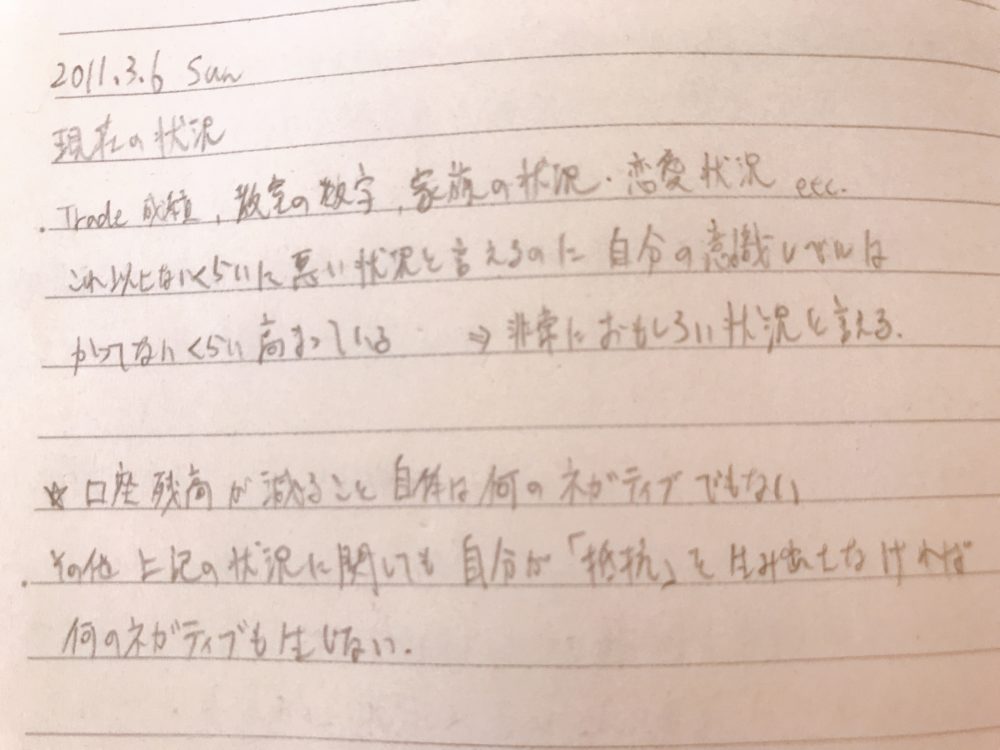 2011.3.6 Sun
現在の状況
・Trade 成績, 教室の数字, 家族の状況・恋愛状況 etc.
これ以上ないくらいに悪い状況と言えるのに 自分の意識レベルは
かつてないくらい高まっている ⇒ 非常におもしろい状況と言える.
☆ 口座残高が減ること自体は何のネガティブでもない
・その他 上記の状況に関しても 自分が「抵抗」を生み出さなければ
何のネガティブも生じない.